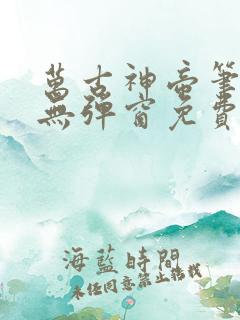 萬古神帝筆
無彈窗免費
海藍時間
未任同意禁止轉載